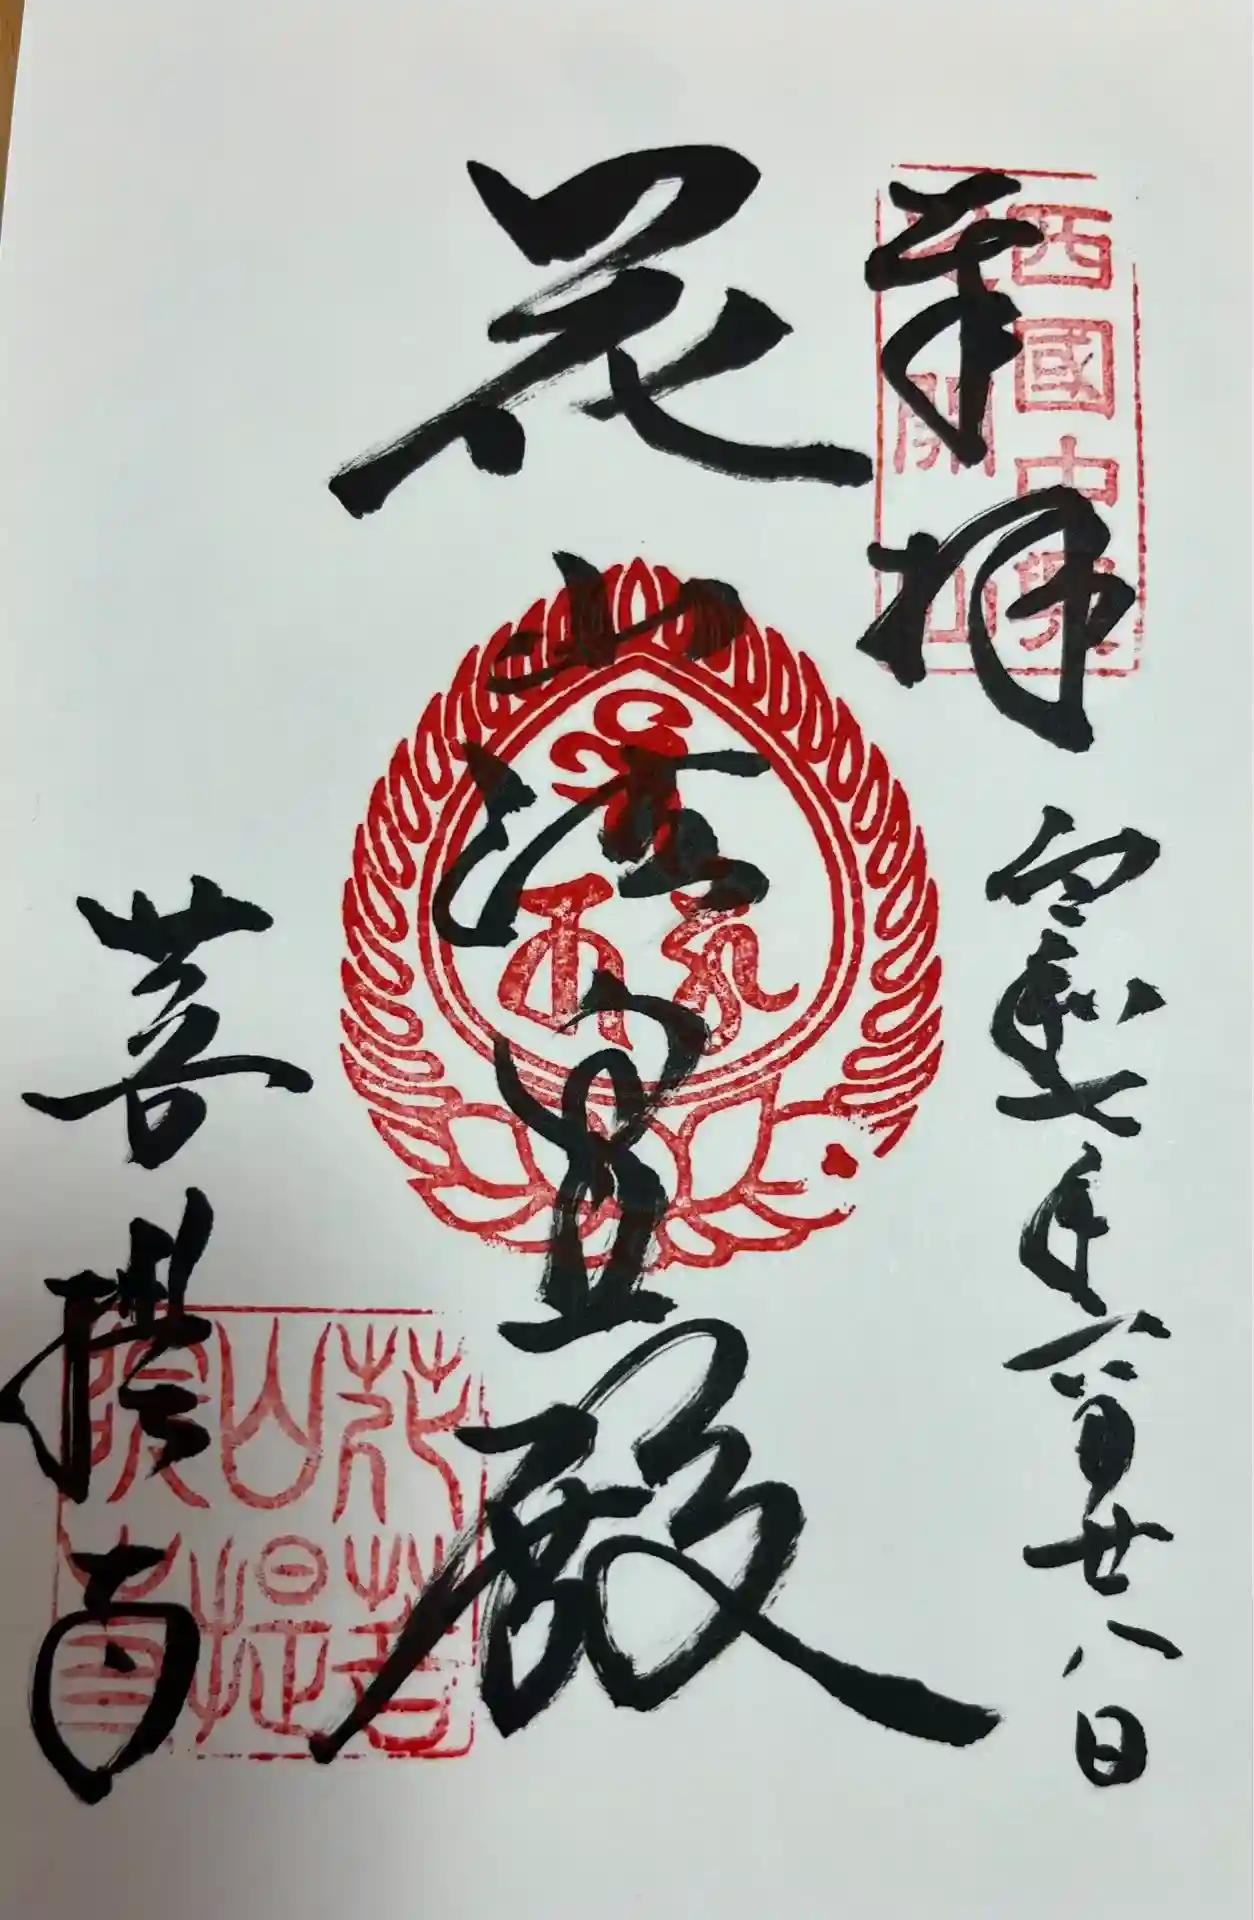 西國中興
之開山
奉拝
令和七年六月廿八日
花山法皇殿
菩提寺
花山院
菩提寺